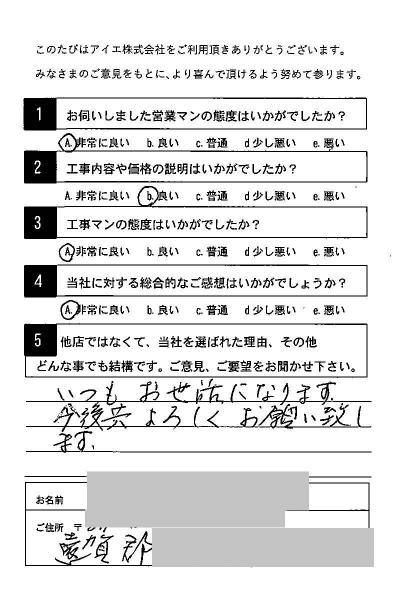 このたびはアイエ株式会社をご利用頂きありがとうございます。
みなさまのご意見をもとに、より喜んで頂けるよう努めて参ります。
1 お伺いしました営業マンの態度はいかがでしたか？
A.非常に良い b.良い c.普通 d少し悪い e.悪い
2 工事内容や価格の説明はいかがでしたか？
A.非常に良い b.良い c.普通 d少し悪い e.悪い
3 工事マンの態度はいかがでしたか？
A.非常に良い b.良い c.普通 d少し悪い e.悪い
4 当社に対する総合的なご感想はいかがでしょうか？
A.非常に良い b.良い c.普通 d少し悪い e.悪い
5 他店ではなくて、当社を選ばれた理由、その他
どんな事でも結構です。ご意見、ご要望をお聞かせ下さい。
いつも お世話になります.
今後共 よろしく お願い致し
ます.
お名前
ご住所 〒
遠賀郡